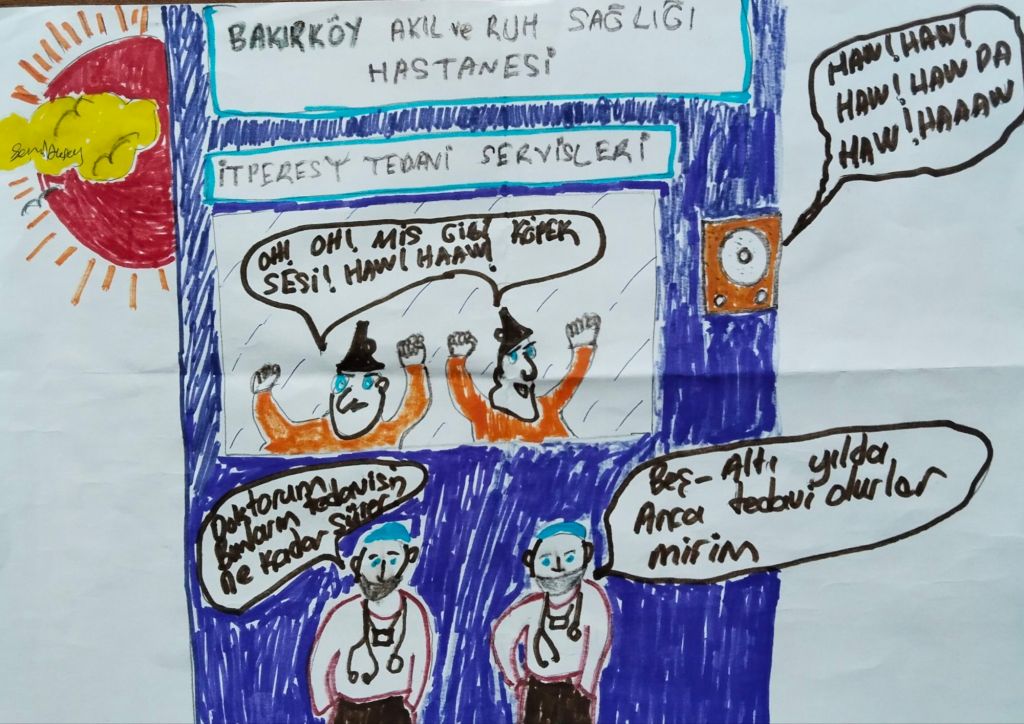 BAKIRKÖY AKIL ve RUH SAĞLIĞI
HASTANESİ
İTPERESY TEDAVİ SERVİSLERİ
HAW! HAW!
HAW! HAW DA
HAW! HAAAW
OH! OH! MİS GİBİ KÖPEK
SESİ! HAW! HAAW!
Doktorum
Bunların tedavisi
ne kadar sürer
Beş-Altı yılda
Anca tedavi olurlar
mirim